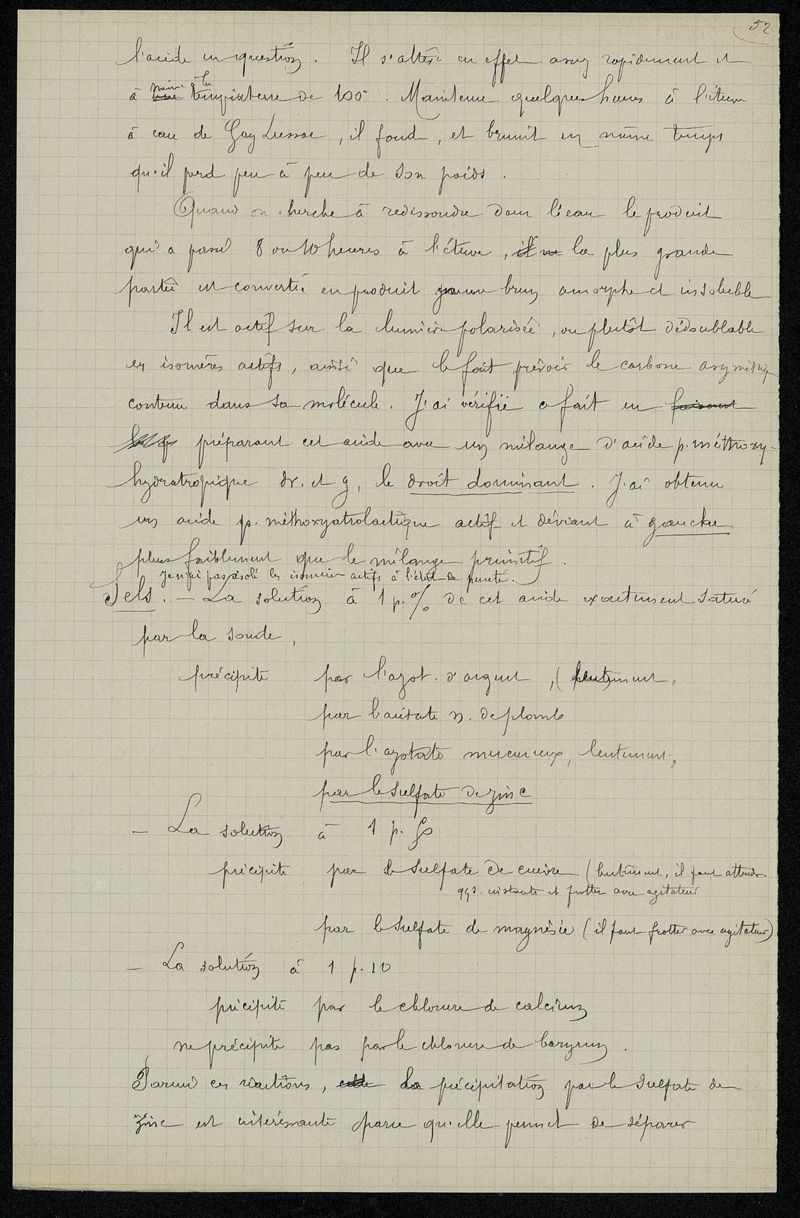 52
l'acide en question. Il s'altère en effet assez rapidement et
à même la température de 100°. Maintenu quelques heures à l'étuve
à eau de Gay Lussac, il fond, et brunit en même temps
qu'il perd peu à peu de son poids.
Quand on cherche à redissoudre dans l'eau le produit
qui a passé 8 ou 10 heures à l'étuve, il ne la plus grande
partie est convertie en produit brun amorphe et insoluble
Il est actif sur la lumière polarisée, ou plutôt dédoublable
en isomères actifs, ainsi que le fait prévoir le carbone asymétriq
contenu dans sa molécule. J'ai vérifié ce fait en faisant
préparant cet acide avec un mélange d'acide p. méthoxy-
hydratropique dr. et g, le droit dominant. J'ai obtenu
un acide p. méthoxyatrolactique actif et déviant à gauche
plus faiblement que le mélange primitif.
Je n'ai pas isolé les isomères actifs à l'état de pureté.
Sels. — La solution à 1 p.% de cet acide exactement saturé
par la soude,
précipite par l'azot. d'argent, (lentement,
par l'acétate n. de plomb
par l'azotate mercureux, lentement,
par le sulfate de zinc
— La solution à 1 p. 50
précipite par le sulfate de cuivre (lentement, il faut attendre
qq. instants et frotter avec agitateur
par le sulfate de magnésie (il faut frotter avec agitateur)
— La solution à 1 p. 10
précipite par le chlorure de calcium
ne précipite pas par le chlorure de baryum.
Parmi ces réactions, cette la précipitation par le sulfate de
zinc est intéressante parce qu'elle permet de séparer